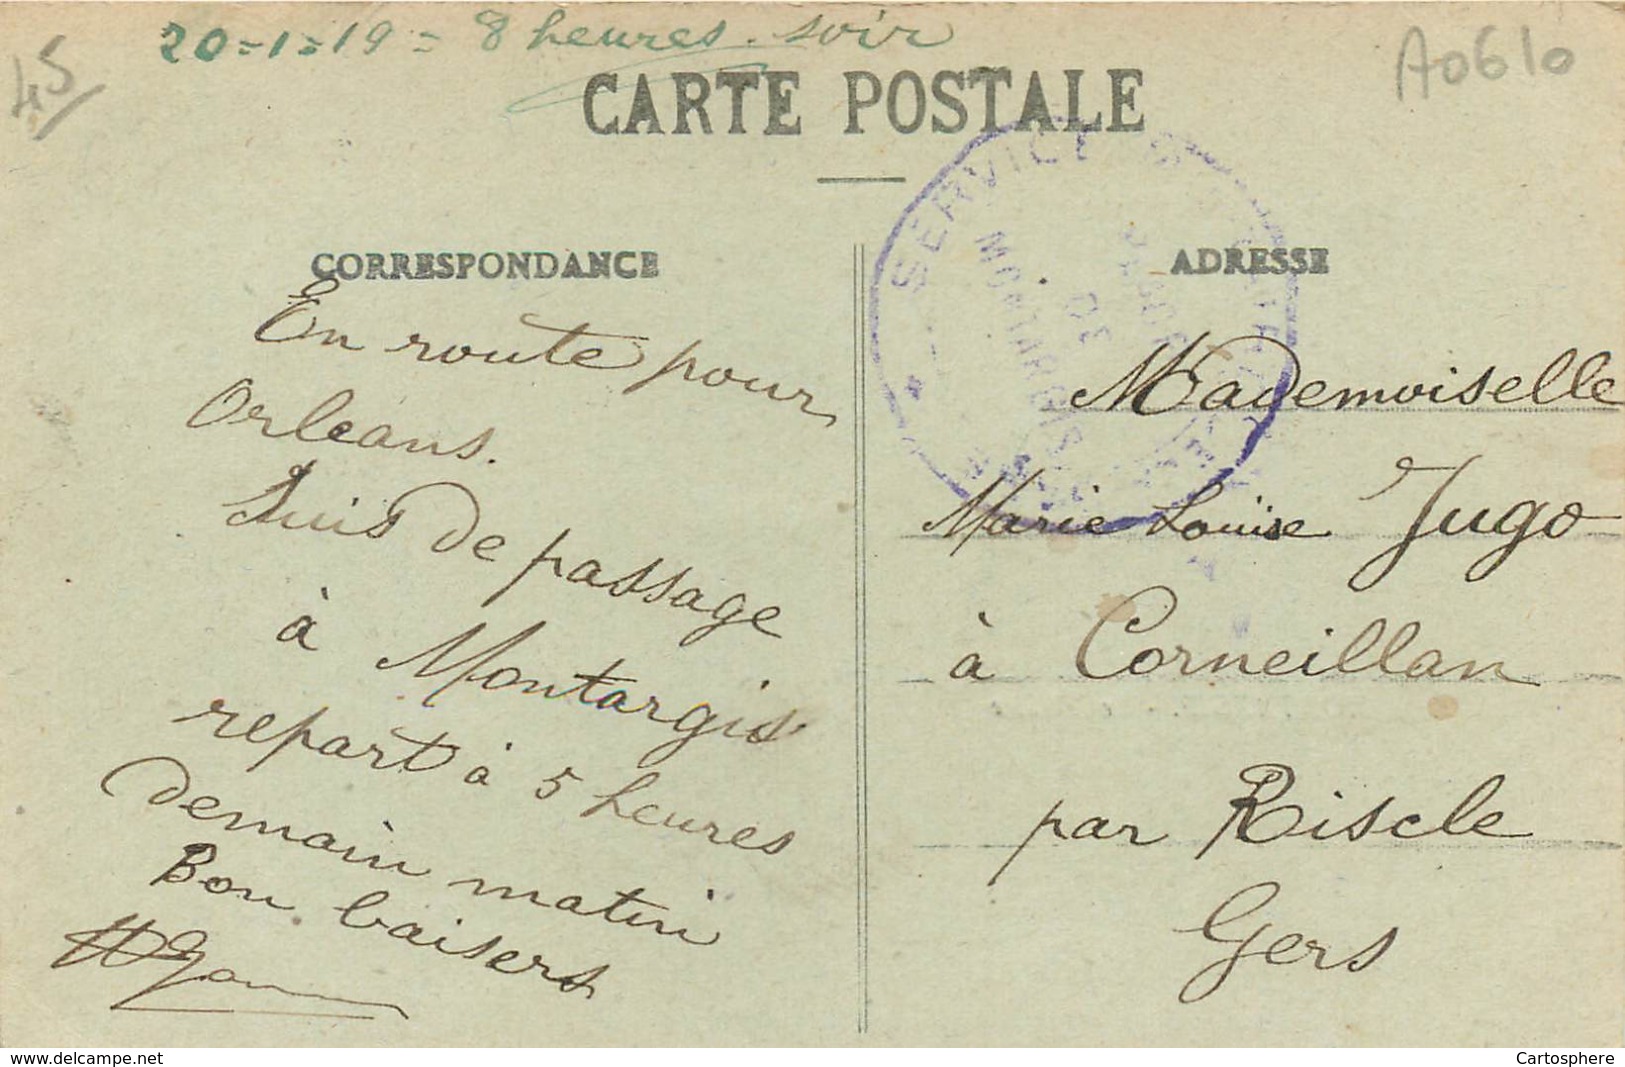 45
20-1-19 = 8 heures. soir
A0610
CARTE POSTALE
CORRESPONDANCE
ADRESSE
SERVICE
DE
MONTARGIS
En route pour
Orleans.
Suis de passage
à Montargis
repart à 5 heures
demain matin
Bon baisers
Mademoiselle
Marie Louise Jugo
à Corneillan
par Riscle
Gers
www.delcampe.net
Cartosphere